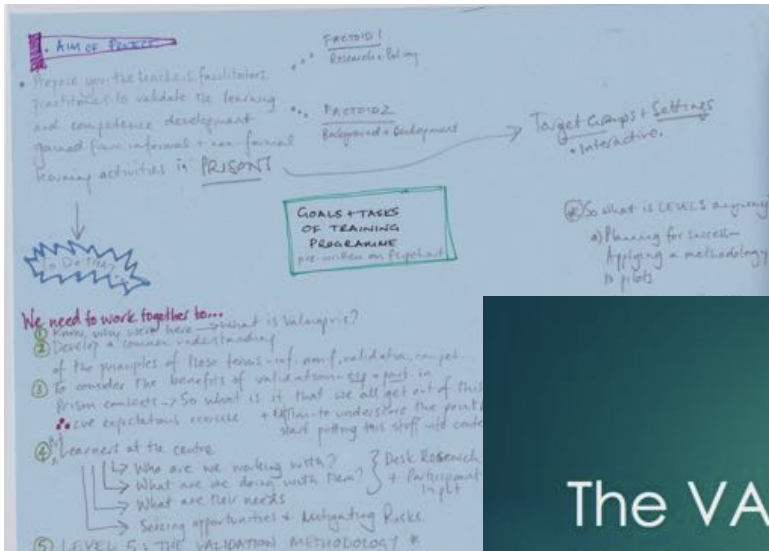 • AIM OF PROJECT
• Prepare teachers, facilitators,
practitioners to validate the learning
and competence development
gained from informal + non-formal
learning activities in PRISONS
To Do THAT
FACTOID 1
Research + Policy
FACTOID 2
Background + Development
Target Groups + Settings
• Interactive •
GOALS + TASKS
OF TRAINING
PROGRAMME
pre-written on flipchart
So what is LEVELS anyway?
a) Planning for success—
Applying a methodology
to pilots
We need to work together to...
① Know why we're here → What is Valmopris?
② Develop a common understanding
of the principles of these terms - inf, non f, validation, compet..
③ To consider the benefits of validation in
Prison contexts → So what is it that we all get out of this
expectations exercise + to understand the point
start putting this stuff into
④ Learners at the centre
Who are we working with?
What are we doing with them?
What are their needs
Seizing opportunities + Mitigating Risks
Desk Research
+ Participant
Input
⑤ LEVEL 5: THE VALIDATION METHODOLOGY
The VA